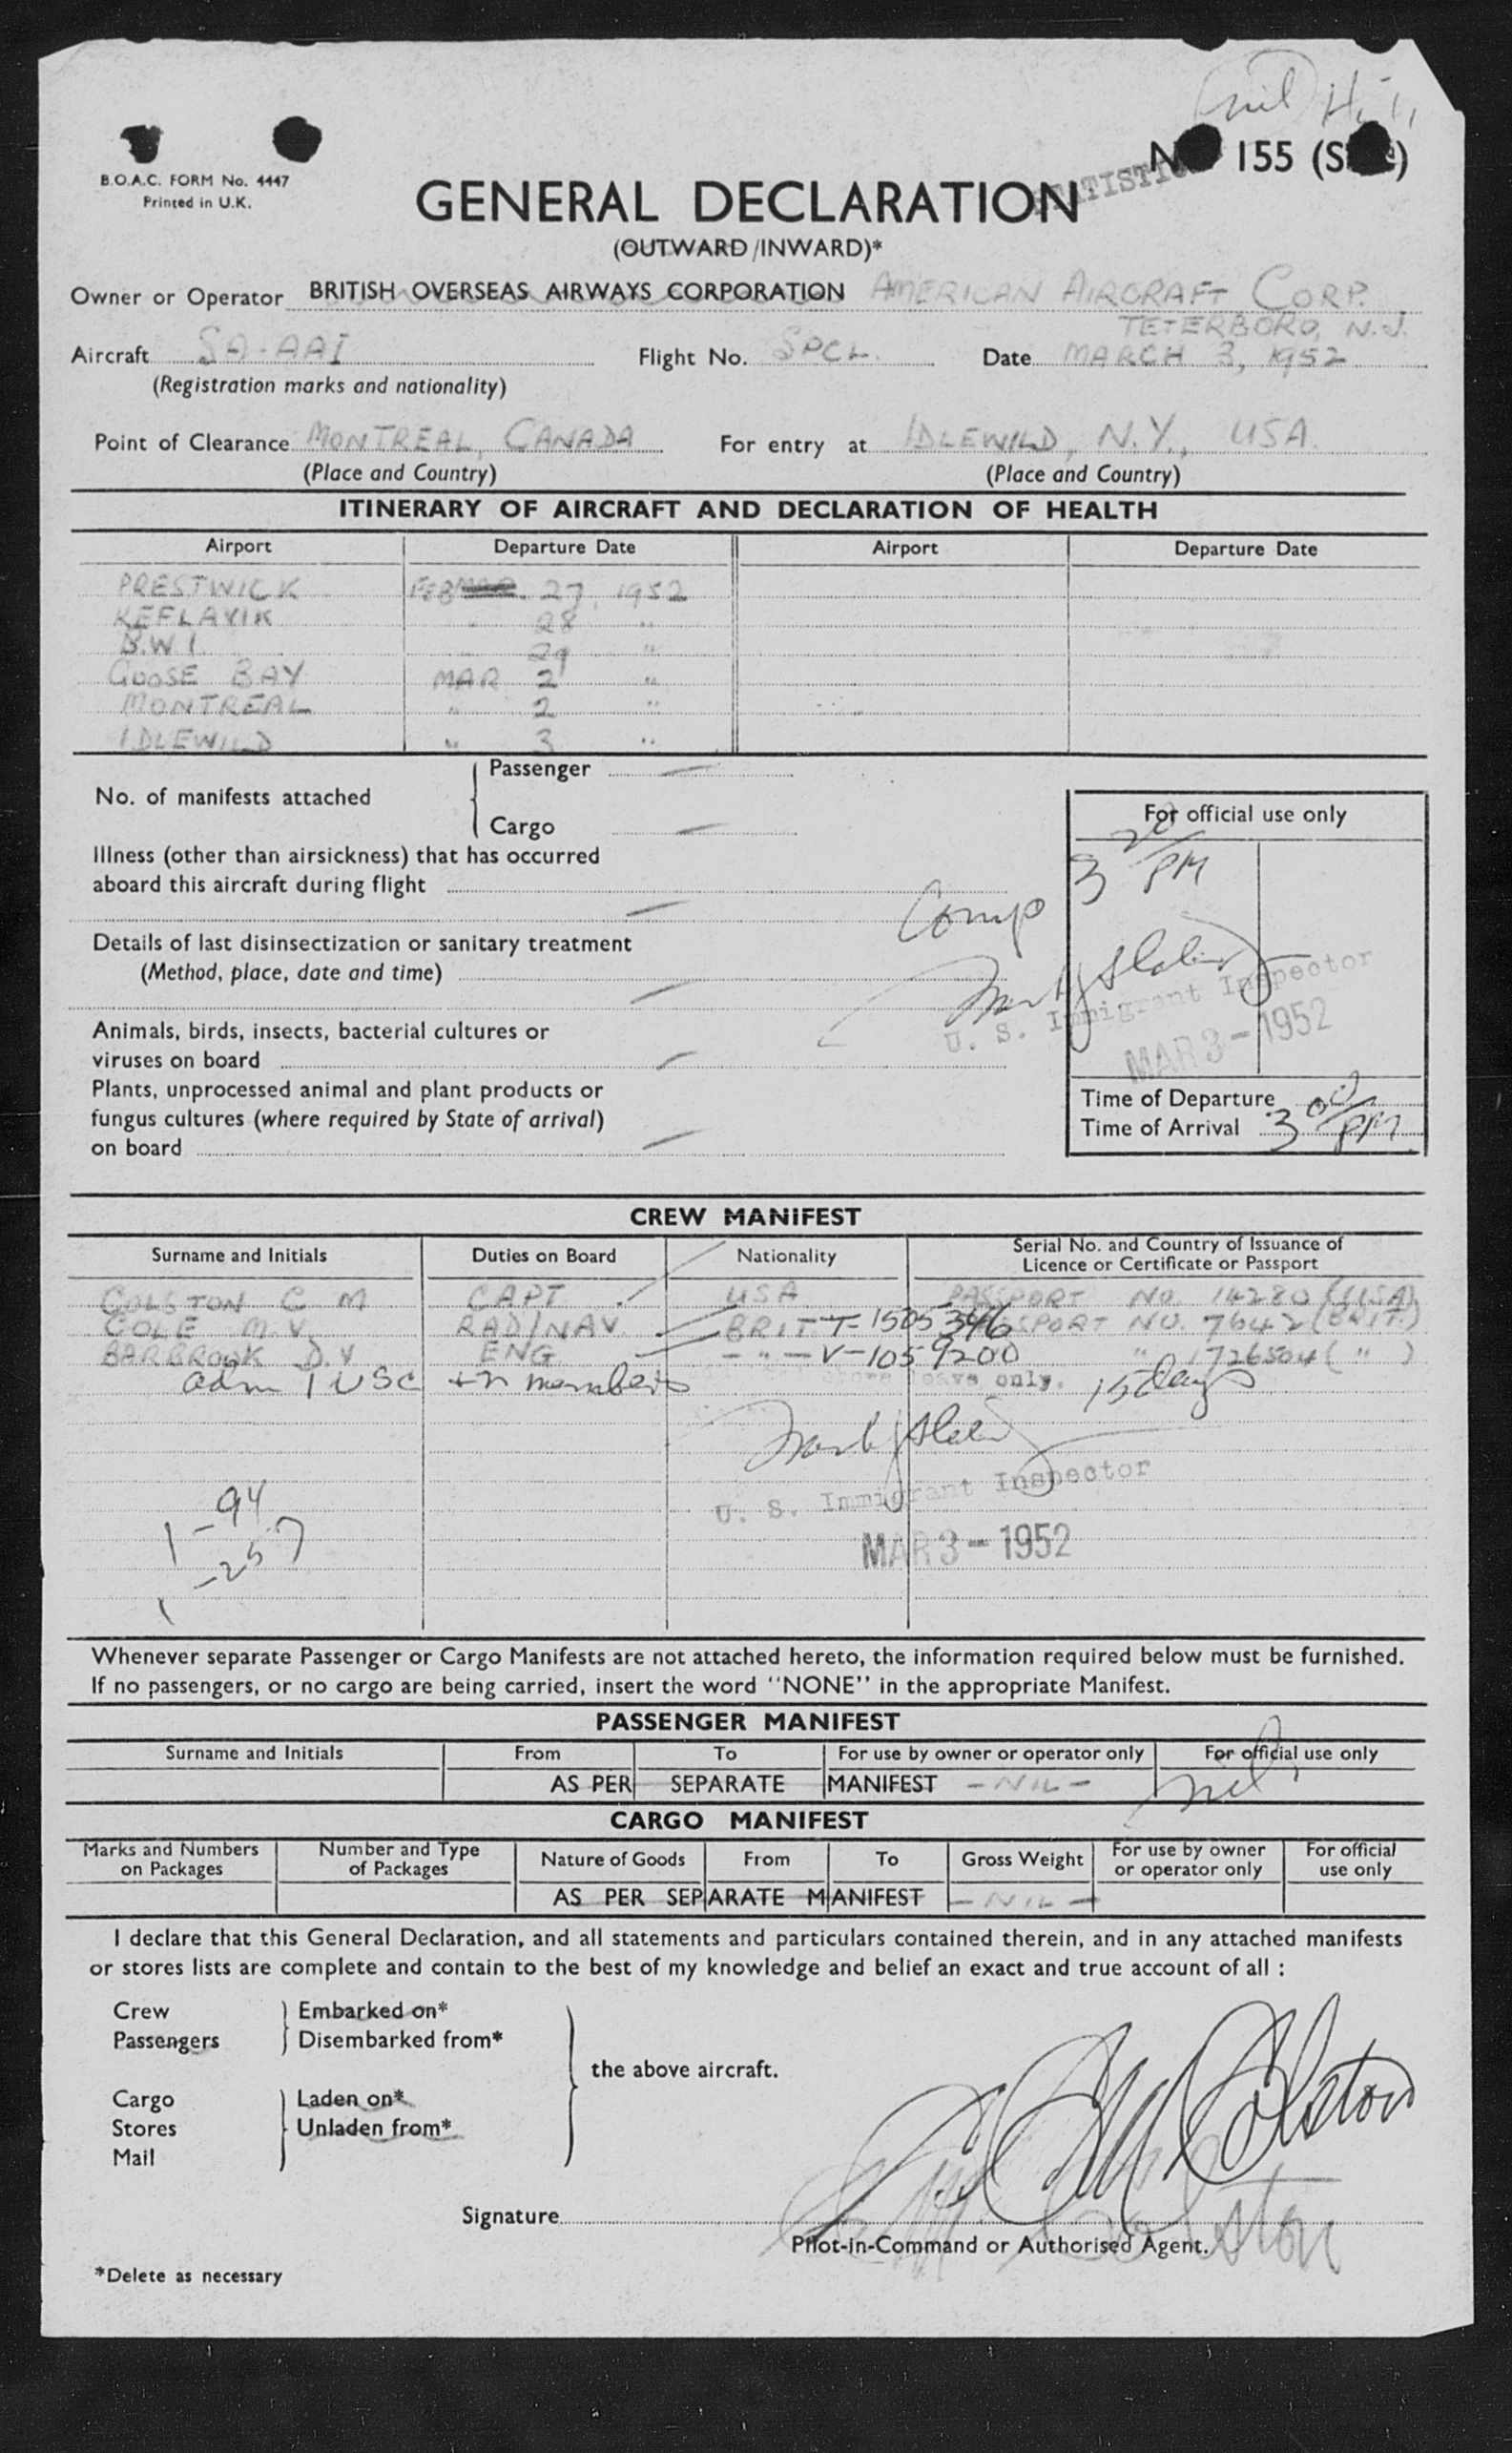 B.O.A.C. FORM No. 4447
Printed in U.K.
155
GENERAL DECLARATION
(OUTWARD/INWARD)*
Owner or Operator BRITISH OVERSEAS AIRWAYS CORPORATION AMERICAN AIRCRAFT CORP.
TETERBORO, N.J.
Aircraft SA-AAI Flight No. SPCL. Date MARCH 3, 1952
(Registration marks and nationality)
Point of Clearance MONTREAL, CANADA For entry at IDLEWILD, N.Y., USA.
(Place and Country) (Place and Country)
ITINERARY OF AIRCRAFT AND DECLARATION OF HEALTH
Airport Departure Date Airport Departure Date
PRESTWICK FEB 27, 1952
KEFLAVIK " 28 "
B.W.1. " 29 "
GOOSE BAY MAR 2 "
MONTREAL " 2 "
IDLEWILD " 3 "
Passenger —
No. of manifests attached
Cargo —
For official use only
3 20/PM
Illness (other than airsickness) that has occurred
aboard this aircraft during flight —
Comp
Details of last disinsectization or sanitary treatment
(Method, place, date and time) —
U. S. Immigrant Inspector
MAR 3 - 1952
Animals, birds, insects, bacterial cultures or
viruses on board —
Plants, unprocessed animal and plant products or
fungus cultures (where required by State of arrival)
on board —
Time of Departure
Time of Arrival 3 00/PM
CREW MANIFEST
Surname and Initials Duties on Board Nationality Serial No. and Country of Issuance of
Licence or Certificate or Passport
COLSTON C M CAPT USA PASSPORT NO. 14280 (USA)
COLE M.V. RAD/NAV BRIT T-1505346 PASSPORT NO. 7642 (BRIT.)
BARBROOK D.V ENG - " - V-1059200 " 1726504 ( " )
adm 1 USC members leave only. 15 days
U. S. Immigrant Inspector
MAR 3 - 1952
1 - 94
1 - 257
Whenever separate Passenger or Cargo Manifests are not attached hereto, the information required below must be furnished.
If no passengers, or no cargo are being carried, insert the word "NONE" in the appropriate Manifest.
PASSENGER MANIFEST
Surname and Initials From To For use by owner or operator only For official use only
AS PER SEPARATE MANIFEST - NIL - nil
CARGO MANIFEST
Marks and Numbers on Packages Number and Type of Packages Nature of Goods From To Gross Weight For use by owner or operator only For official use only
AS PER SEPARATE MANIFEST - NIL -
I declare that this General Declaration, and all statements and particulars contained therein, and in any attached manifests
or stores lists are complete and contain to the best of my knowledge and belief an exact and true account of all :
Crew Embarked on*
Passengers Disembarked from*
the above aircraft.
Cargo Laden on*
Stores Unladen from*
Mail
C M Colston
Signature
Pilot-in-Command or Authorised Agent.
*Delete as necessary